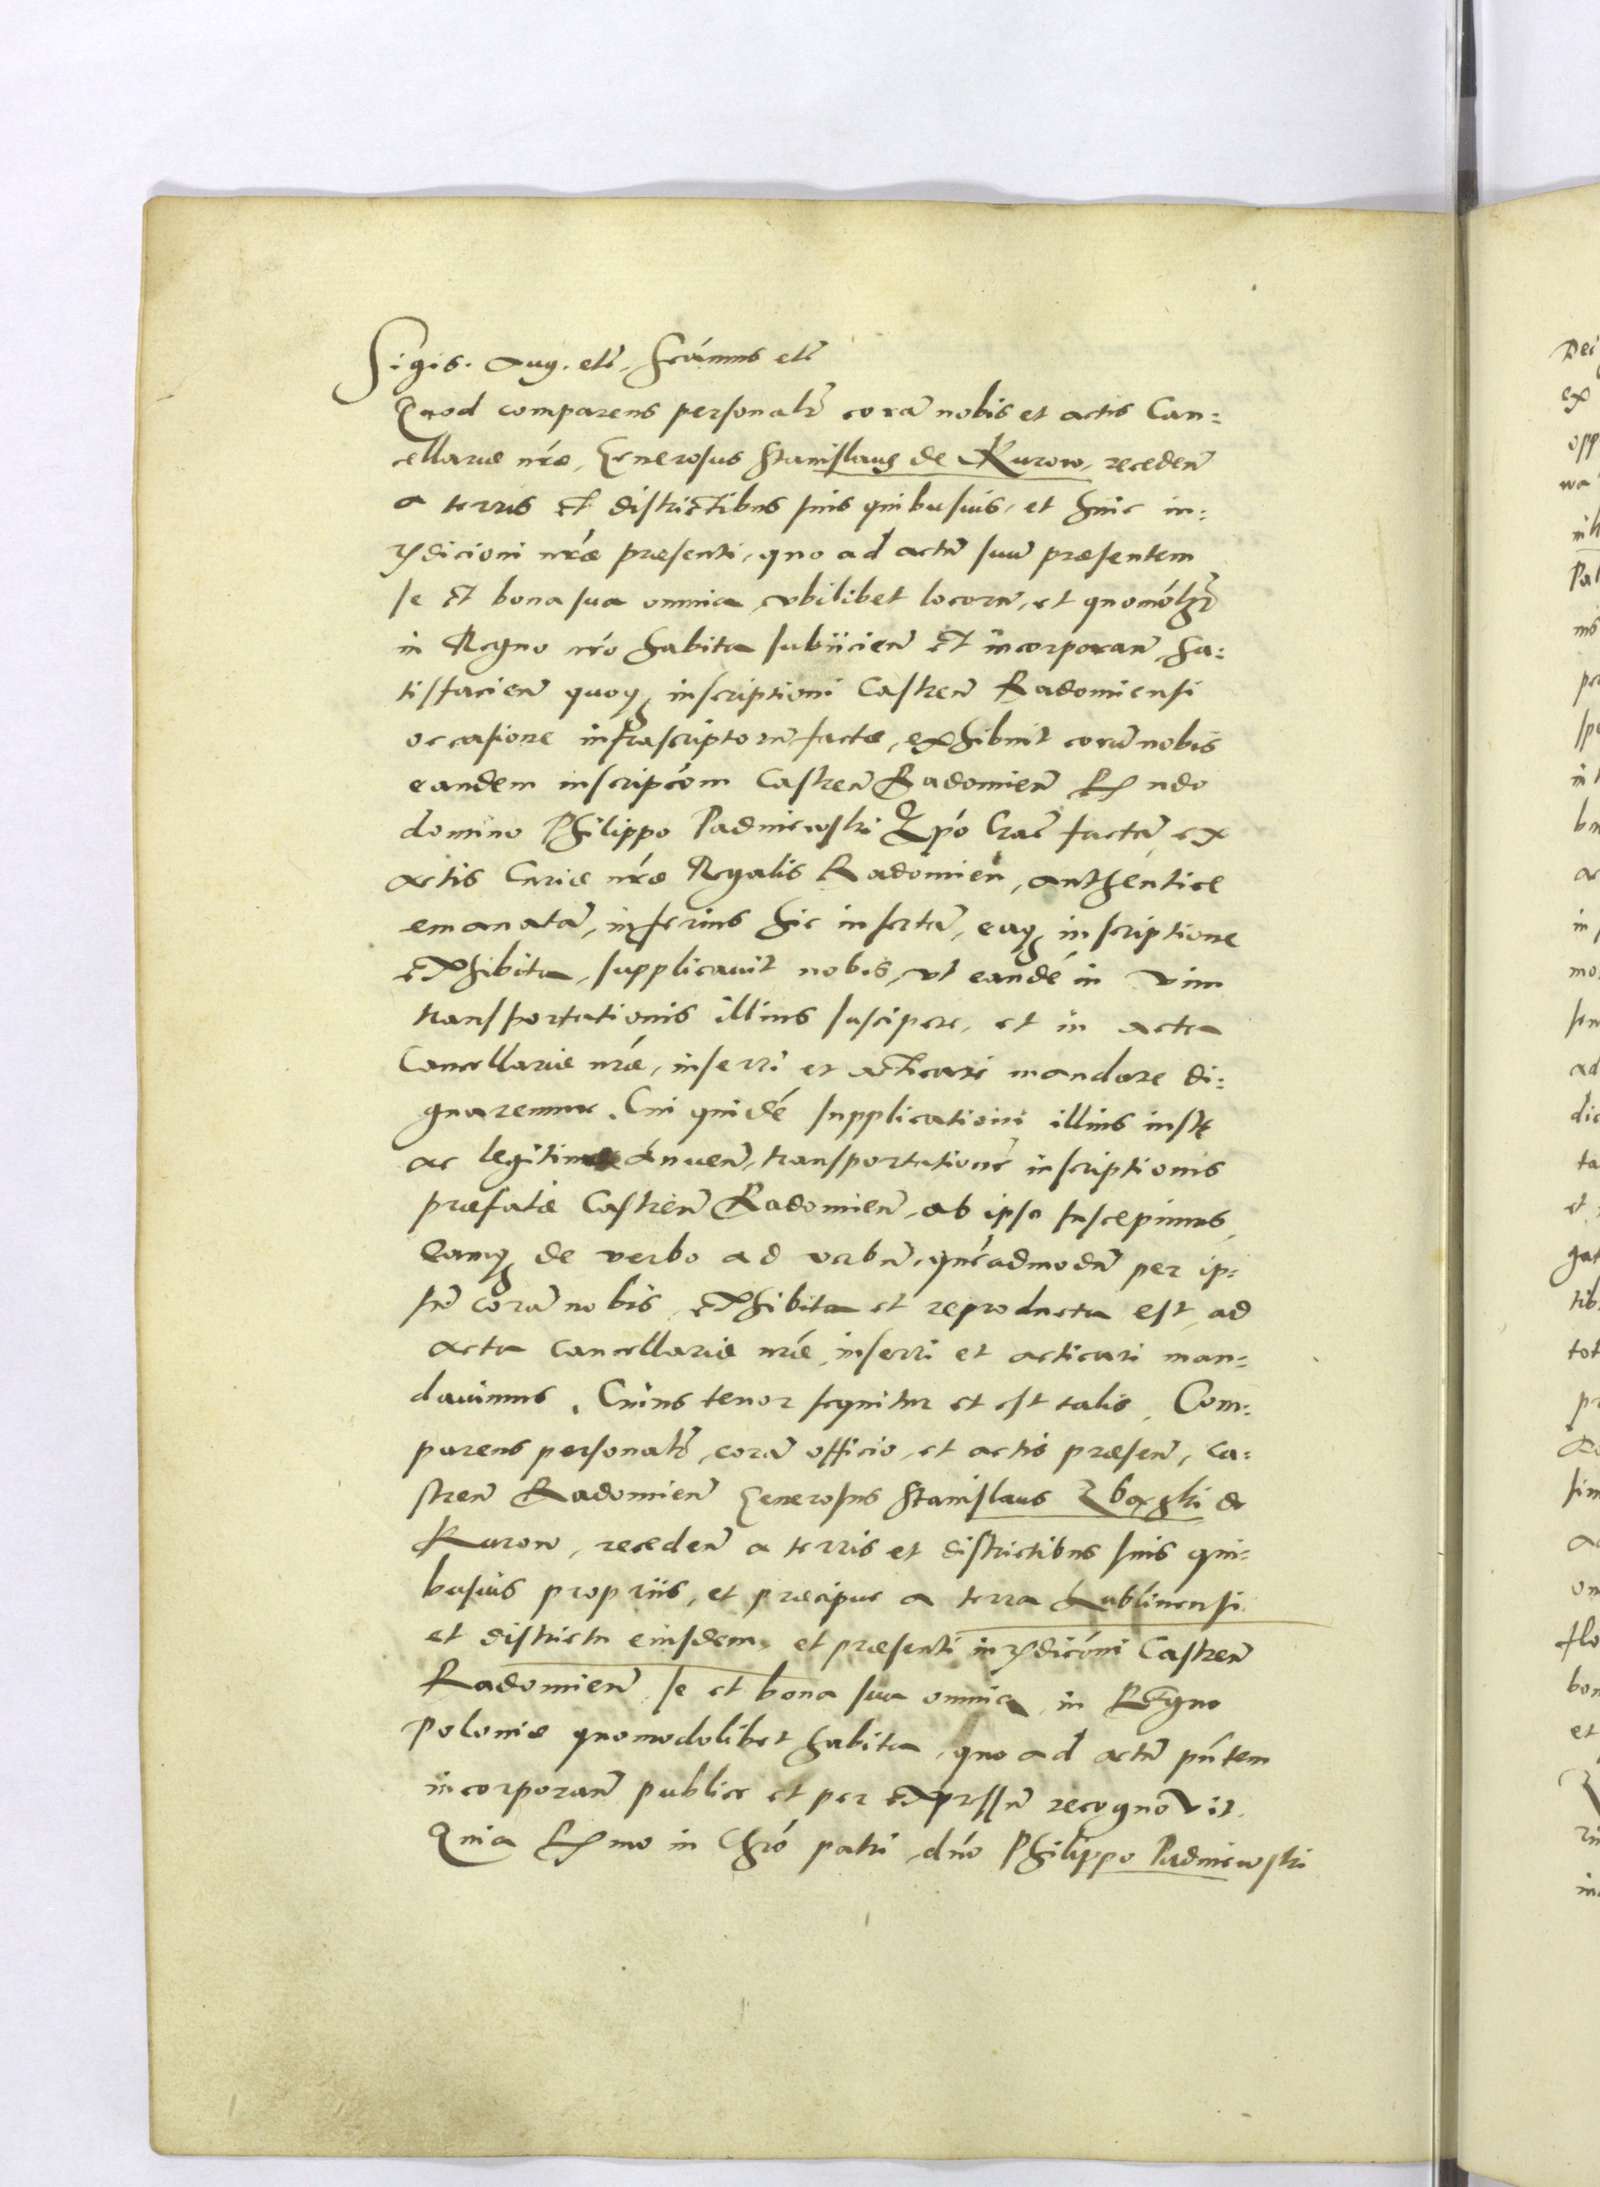 Sigis. Aug. etc̃. Scimus etc̃
Quod comparens personalr̃ corã nobis et actis Can=
cellariæ nrǽ, Generosus Stanislaus de Kurow, receden̄
a terris et districtibus suis quibusuis, et huic iu=
rydicioni nrǽ præsenti, quo ad actũ suũ præsentem
se et bona sua omnia, vbilibet locorũ, et quomolȝꝫ
in Regno nró habita subiicien̄ et incorporan̄, sa=
tisfacien̄ quoqꝫ inscriptioni Castren̄ Radomiensi
occasione infrascriptorũ factæ, exhibuit corã nobis
eandem inscripcóm Castren̄ Radomien̄ Rndo
domino Philippo Padniewski Epó Crac̃ factã, ex
actis Curiæ nrǽ Regalis Radomien̄, authentice
emanatã, inferius hic insertã, eaqꝫ inscriptione
exhibita, supplicauit nobis, vt eandé in vim
transportationis illius suscipere, et in acta
Cancellariæ nrǽ, inserri et acticari mandare di=
gnaremur. Cui quidé supplicationi illius iustę
ac legitimæ ánnuen̄, transportationé inscriptionis
præfatæ Castren̄ Radomien̄, ab ipso suscepimus,
Eamqꝫ de verbo ad verbũ, quéadmodũ per ip=
sũ corã nobis, exhibita et reproducta est, ad
acta cancellariæ nrǽ, inserri et acticari man=
dauimus. Cuius tenor sequitur et est talis. Com=
parens personalr̃, corã officio, et actis præsen̄, Ca=
stren̄ Radomien̄ Generosus Stanislaus Zbąski de
Kurow, receden̄ a terris et districtibus suis qui=
busuis propriis, et præcipue a terra Lublinensi
et districtu eiusdem, et præsenti iurydicóni Castren̄
Radomien̄, se et bona sua omnia, in Regno
Poloniæ quomodolibet habita, quo ad actũ pńtem
incorporan̄ publice et per expressũ recognovit.
Quia Rmo in Chró patri, dńo Philippo Padniewski